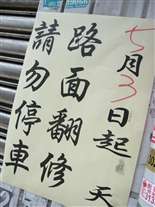 七月3日起
路面翻修
請勿停車
天